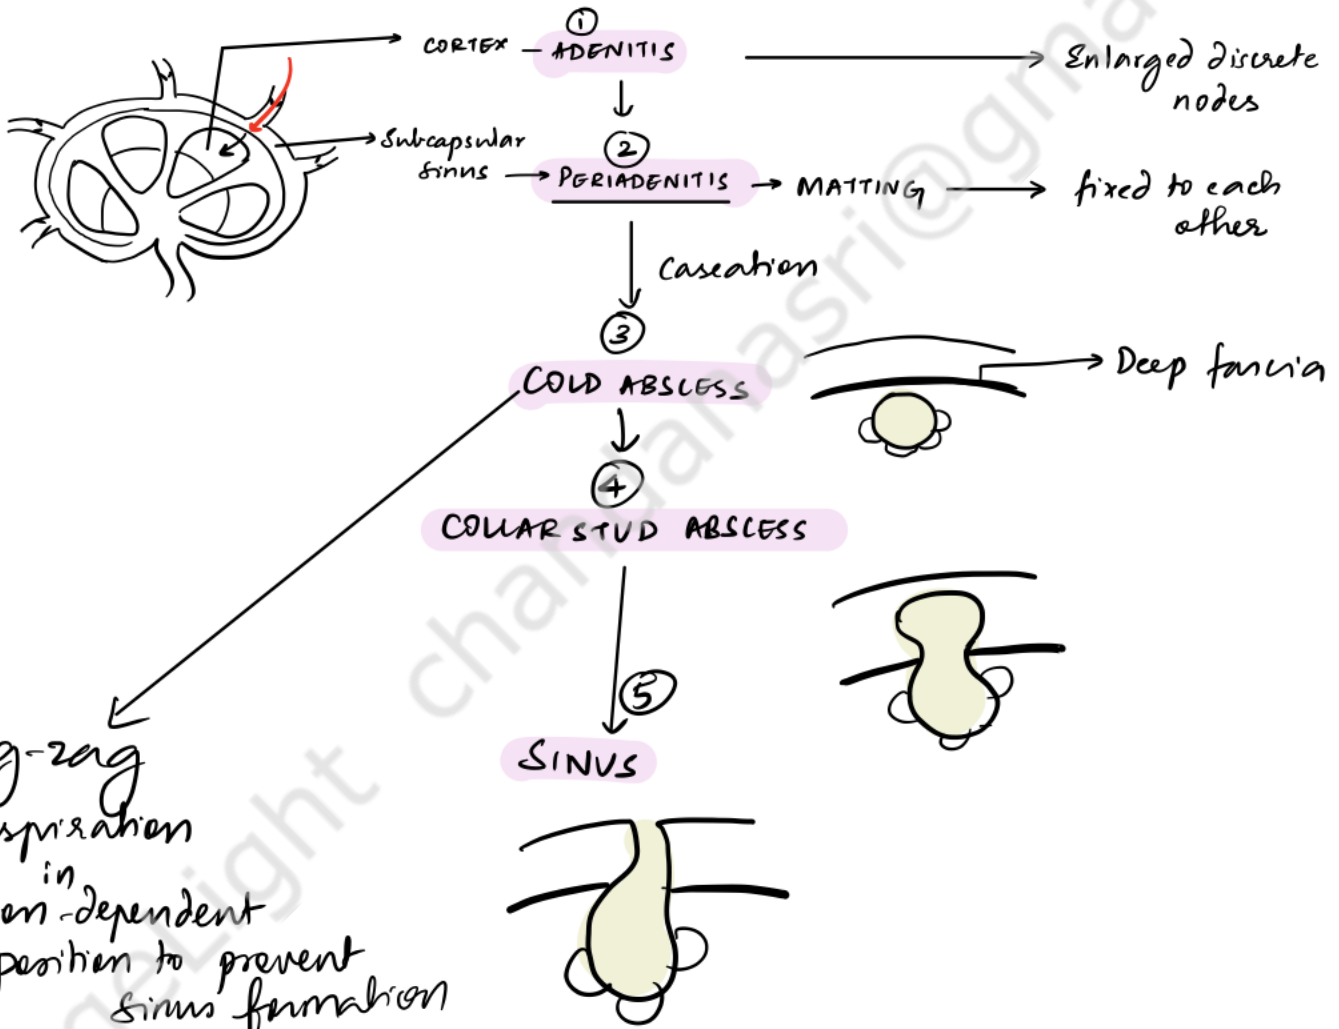 ①
CORTEX – ADENITIS → Enlarged discrete
nodes
Subcapsular
sinus → ②
PERIADENITIS → MATTING → fixed to each
other
Caseation
③
COLD ABSCESS
Deep fascia
④
COLLAR STUD ABSCESS
⑤
SINUS
g-zag
spiration
in
on-dependent
position to prevent
sinus formation
geLight chandanasri@gma